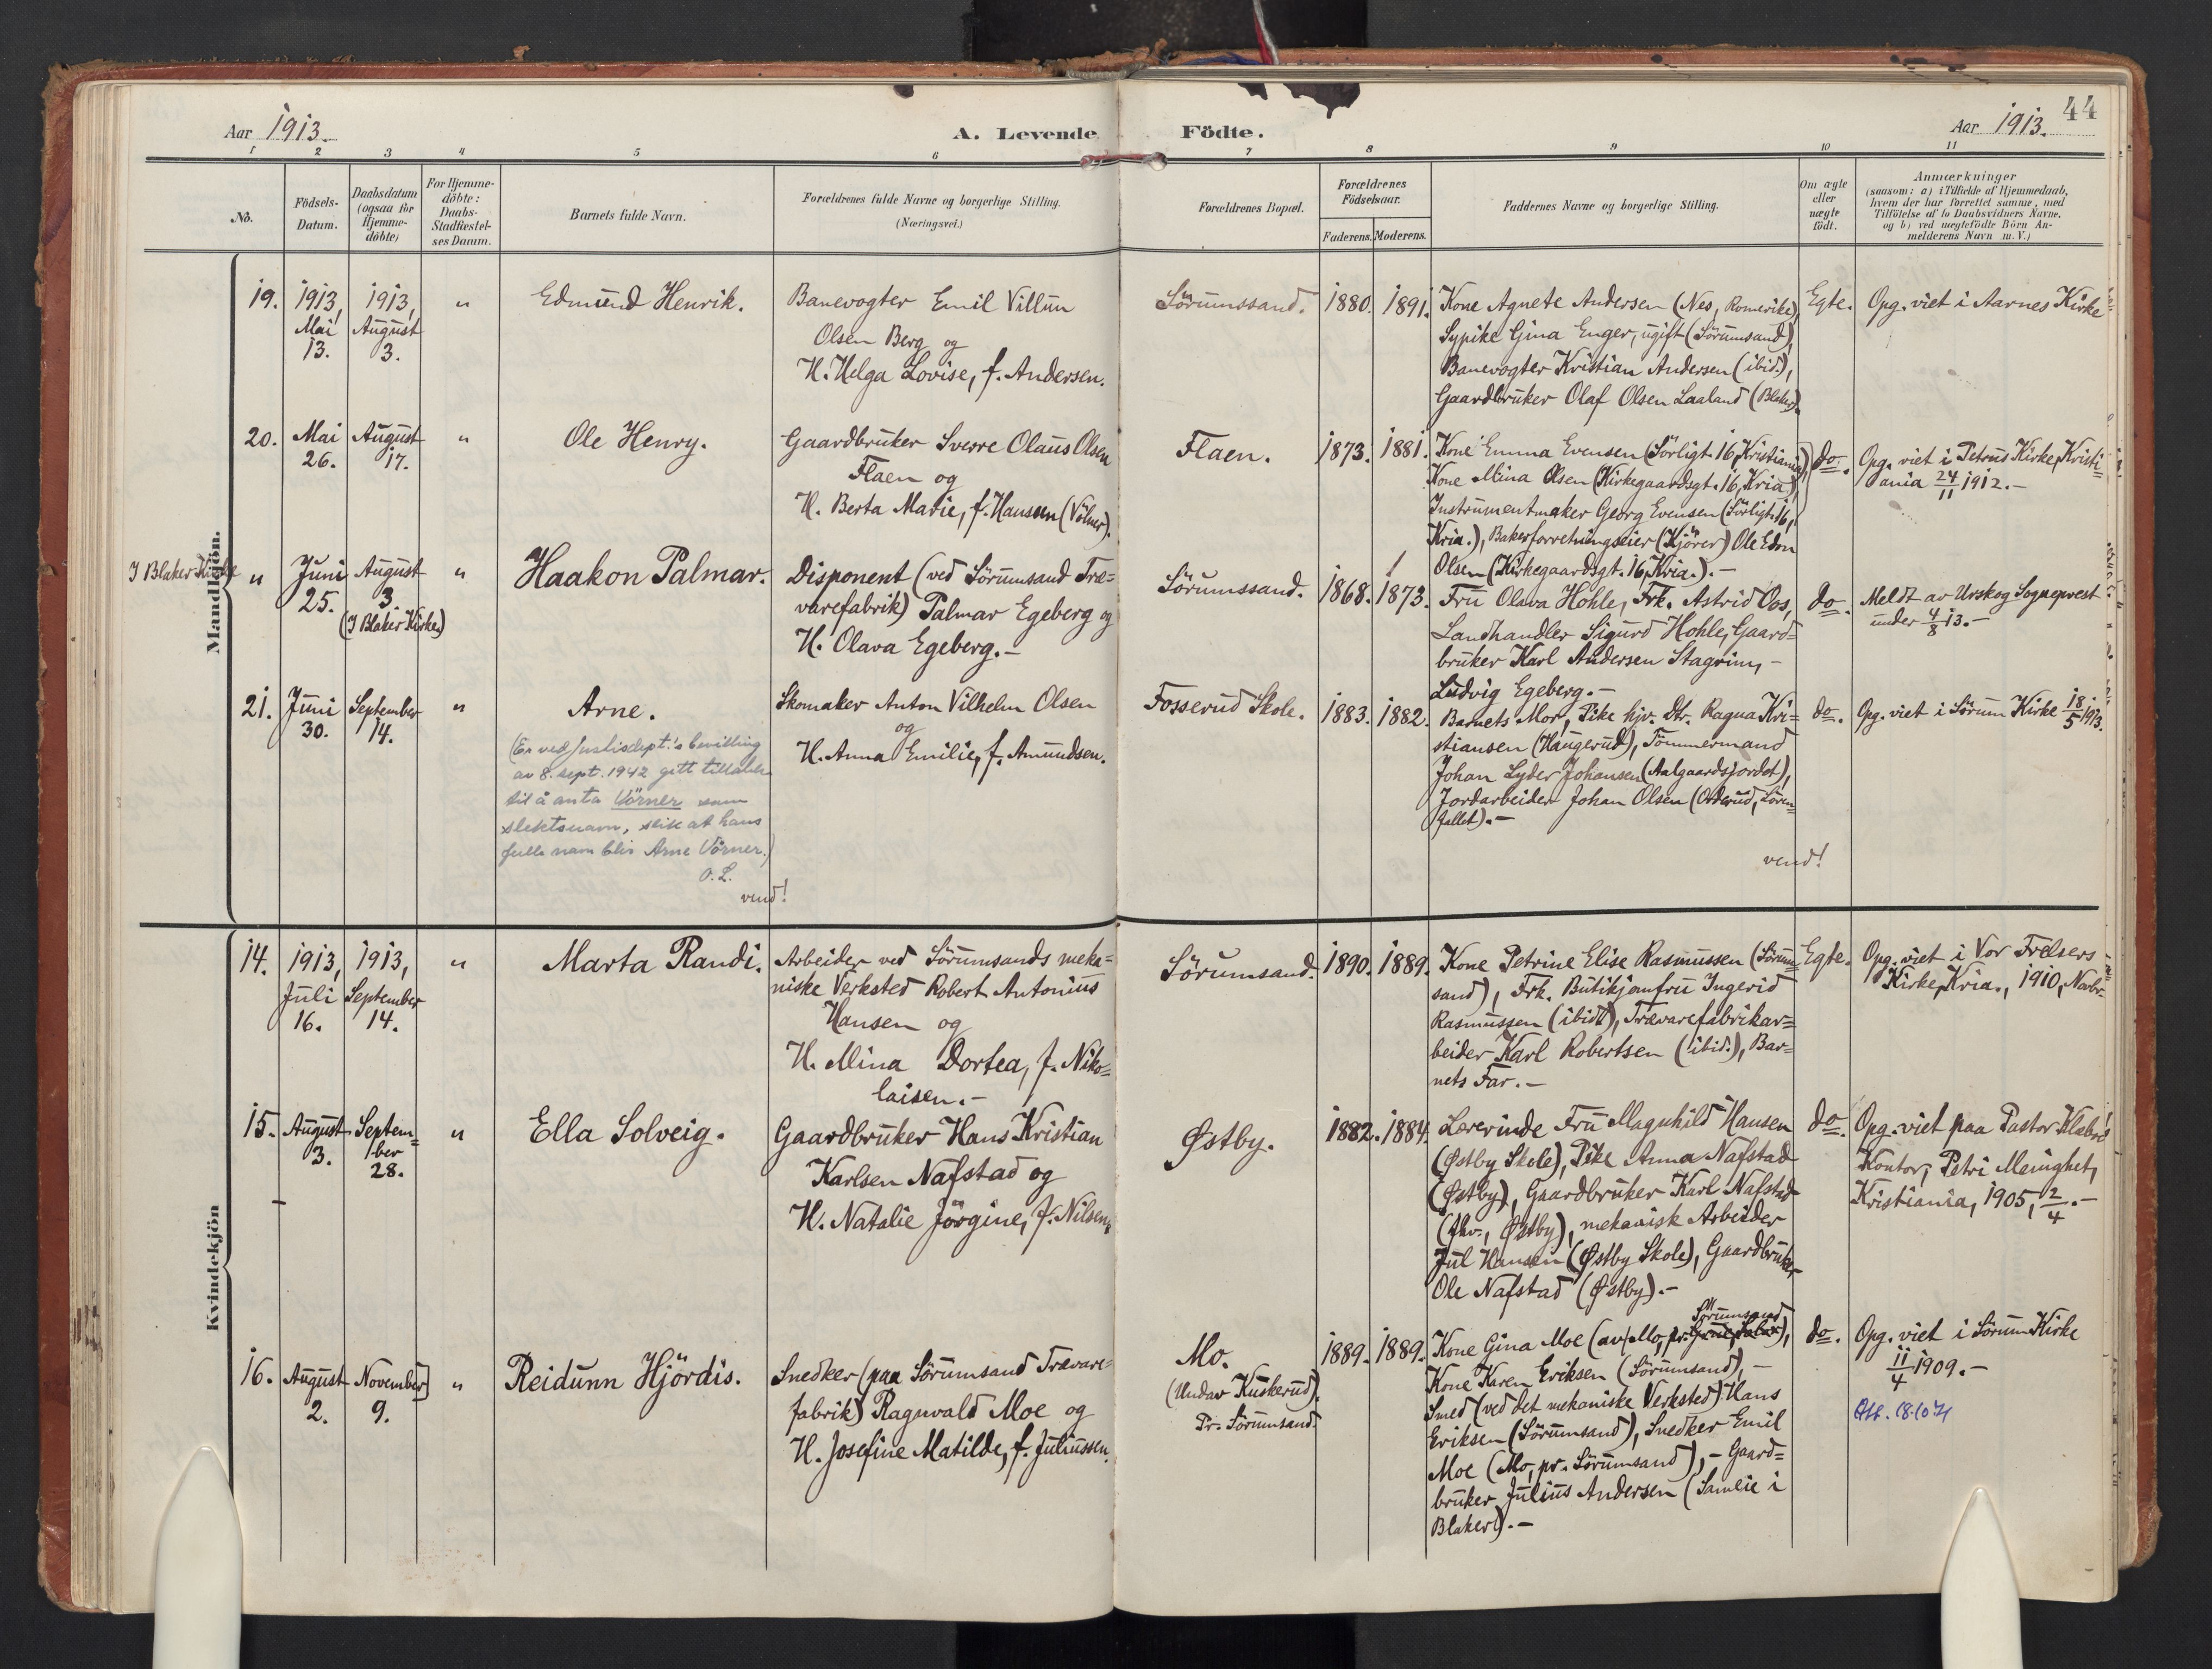 Aar 1913.
A. Levende
Födte.
Aar 1913.
44
1 2 3 4 5 6 7 8 9 10 11
No.
Födsels-
Datum.
Daabsdatum
(ogsaa for
Hjemme-
döbte)
For Hjemme-
döbte:
Daabs-
Stadfæstel-
ses Datum.
Barnets fulde Navn.
Forældrenes fulde Navne og borgerlige Stilling.
(Næringsvei.)
Forældrenes Bopæl.
Forældrenes
Födselsaar.
Faderens. Moderens.
Faddernes Navne og borgerlige Stilling.
Om ægte
eller
uægte
födt.
Anmærkninger
(saasom: a) i Tilfælde af Hjemmedaab,
hvem der har forrettet samme, med
Tilföielse af to Daabsvidners Navne,
og b) ved uægtefödte Börn An-
melderens Navn m. V.)
Mandkjön.
19.
1913,
Mai
13.
1913,
August
3.
"
Edmund Henrik.
Banevogter Emil Villun
Olsen Berg og
H. Helga Lovise, f. Andersen.
Sörumssand.
1880. 1891.
Kone Agnete Andersen (Nes, Romerike),
Sypike Gina Enger, ugift (Sörumsand),
Banevogter Kristian Andersen (ibid.),
Gaardbruker Olaf Olsen Laaland (Blaker).
Egte.
Opg. viet i Aarnes Kirke
20.
Mai
26.
August
17.
"
Ole Henry.
Gaardbruker Sverre Olaus Olsen
Flaen og
H. Berta Marie, f. Hansen (Völner).
Flaen.
1873. 1881.
Kone Emma Evensen (Sörligt. 16, Kristiania),
Kone Mina Olsen (Kirkegaardsgt. 16, Kria),
Instrumentmaker Georg Evensen (Sörligt. 16,
Kria.), Bakerforretningseier (Kjörer) Ole Edvn
Olsen (Kirkegaardsgt. 16, Kria.).-
do.
Opg. viet i Petrus Kirke, Kristi-
ania 24/11 1912.-
I Blaker Kirke
"
Juni
25.
August
3
(I Blaker Kirke)
"
Haakon Palmar.
Disponent (ved Sörumsand Træ=
varefabrik) Palmar Egeberg og
H. Olava Egeberg.-
Sörumssand.
1868. 1873.
Fru Olava Hohle, Frk. Astrid Oos,
Landhandler Sigurd Hohle, Gaard=
bruker Karl Andersen Stagrim,-
Ludvig Egeberg.-
do.
Meldt av Urskog Sogneprest
under 4/8 13.-
21.
Juni
30.
September
14.
"
Arne.
(Er ved Justisdept.'s bevilling
av 8. sept. 1942 gitt tillatelse
til å anta Vörner som
slektsnavn, slik at hans
fulle navn blir Arne Vörner.)
O. L.
vend!
Skomaker Anton Vilhelm Olsen
og
H. Anna Emilie, f. Amundsen.
Fosserud Skole.
1883. 1882.
Barnets Mor, Pike hjv. Dtr. Ragna Kri=
stiansen (Haugerud), Tömmermand
Johan Lyder Johansen (Aalgaardsjordet),
Jordarbeider Johan Olsen (Orderud, Lören=
fallet).-
vend!
do.
Opg. viet i Sörum Kirke 18/5 1913.
Kvindekjön
14.
1913,
Juli
16.
1913,
September
14.
"
Marta Randi.
Arbeider ved Sörumsands meka=
niske Verksted Robert Antonius
Hansen og
H. Mina Dortea, f. Niko=
laisen.-
Sörumsand.
1890. 1889.
Kone Petrine Elise Rasmussen (Sörum-
sand), Frk. Butikjomfru Ingerid
Rasmussen (ibid), Trævarefabrikar=
beider Karl Robertsen (ibid.), Bar=
nets Far.-
Egte.
Opg. viet i Vor Frelsers
Kirke, Kria., 1910, Novbr.
15.
August
3.
Septem=
ber
28.
"
Ella Solveig.
Gaardbruker Hans Kristian
Karlsen Nafstad og
H. Natalie Jörgine, f. Nilsen,
Østby.
1882. 1884.
Lærerinde Fru Magnhild Hansen
(Østby Skole), Pike Anna Nafstad
(Østby), Gaardbruker Karl Nafstad
(fhv., Østby), mekanisk Arbeider
Jul Hansen (Østby Skole), Gaardbruker
Ole Nafstad (Østby).-
do.
Opg. viet paa Pastor Klæboes
Kontor, Petri Menighet,
Kristiania, 1905, 2/4.-
16.
August
2.
November
9.
"
Reidunn Hjördis.
Snedker (paa Sörumsand Trævare=
fabrik) Ragnvald Moe og
H. Josefine Matilde, f. Juliussen.
Mo.
(Undav Kuskerud).
Pr. Sörumsand.
1889. 1889.
Sörumsand
Kone Gina Moe (av Mo, pr.
Kone Karen Eriksen (Sörumsand),-
Smed (ved det mekaniske Verksted) Hans
Eriksen (Sörumsand), Snedker Emil
Moe (Mo, pr. Sörumsand),- Gaard=
bruker Julius Andersen (Samlie i
Blaker).-
do.
Opg. viet i Sörum Kirke
11/4 1909.-
18.10.71